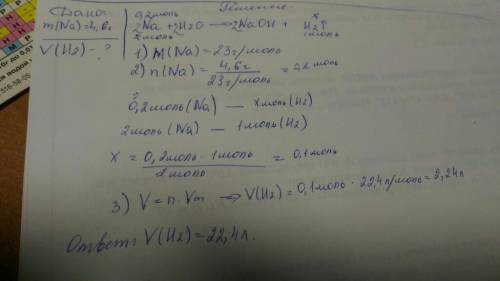 Дано
m(Na)=4,6г
V(H2)-?
Решение
0,2моль x
2Na + 2H2O → 2NaOH + H2↑
2моль 1моль
1) M(Na)=23г/моль
2) n(Na)= 4,6г / 23г/моль = 0,2 моль
0,2моль(Na) — xмоль(H2)
2моль(Na) — 1моль(H2)
x = 0,2моль · 1моль / 2моль = 0,1моль
3) V = n · Vm ⇒ V(H2)=0,1моль · 22,4л/моль=2,24л
Ответ: V(H2)=22,4л.